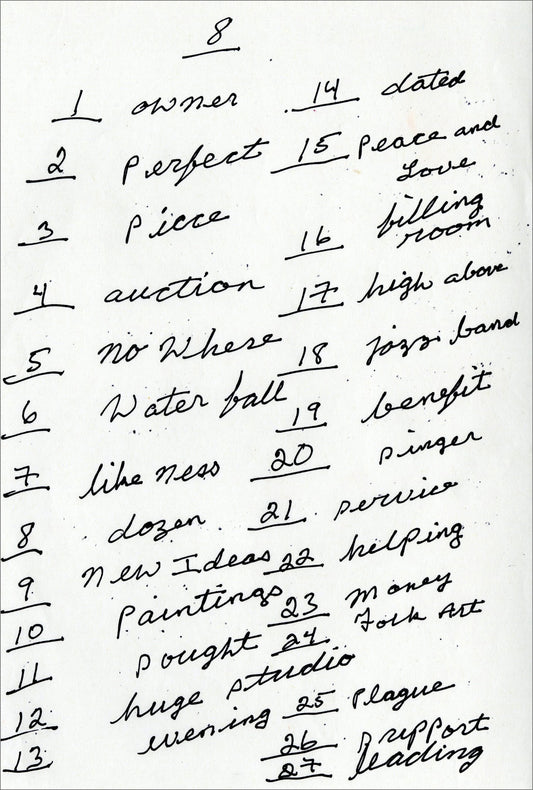 8
1 owner
2 Perfect
3 Piece
4 auction
5 No Where
6 Water fall
7 like ness
8 dozen
9 New Ideas
10 Paintings
11 sought
12 huge studio
13 evening
14 dated
15 Peace and
Love
16 billing
room
17 high above
18 jazz band
19 benefit
20 singer
21 service
22 helping
23 Money
24 Folk Art
25 Plague
26 support
27 leading